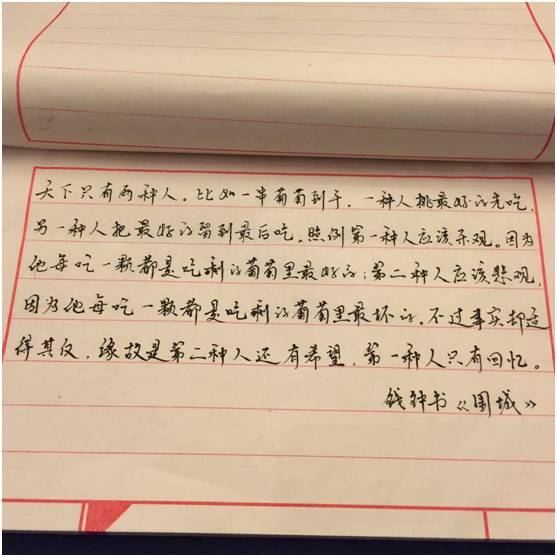 天下只有两种人。比如一串葡萄到手，一种人挑最好的先吃，
另一种人把最好的留到最后吃。照例第一种人应该乐观，因为
他每吃一颗都是吃剩的葡萄里最好的；第二种人应该悲观，
因为他每吃一颗都是吃剩的葡萄里最坏的。不过事实却适
得其反，缘故是第二种人还有希望，第一种人只有回忆。
钱钟书《围城》